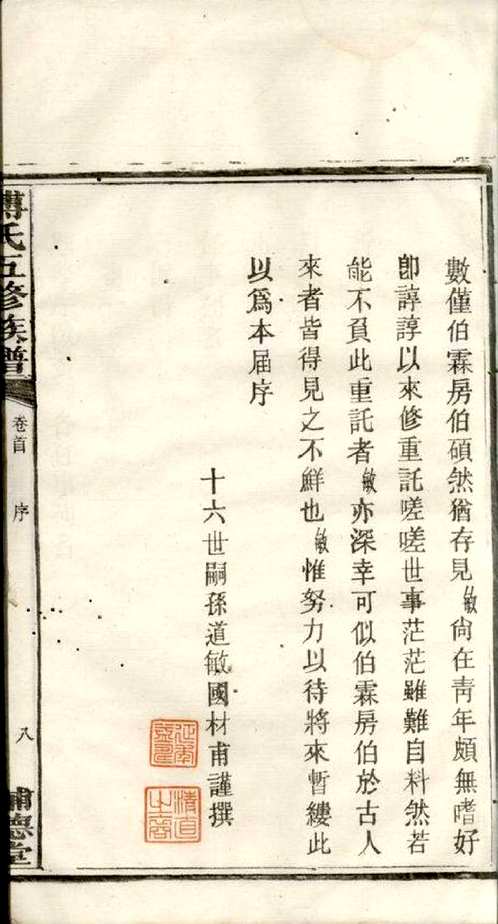 數僅伯霖房伯碩然猶存見敏尙在靑年頗無嗜好
卽諄諄以來修重託嗟嗟世事茫茫雖難自料然若
能不負此重託者敏亦深幸可似伯霖房伯於古人
來者皆得見之不鮮也敏惟努力以待將來暫縷此
以爲本届序
十六世嗣孫道敏國材甫謹撰
傅氏五修族譜
卷首
序
八
清直